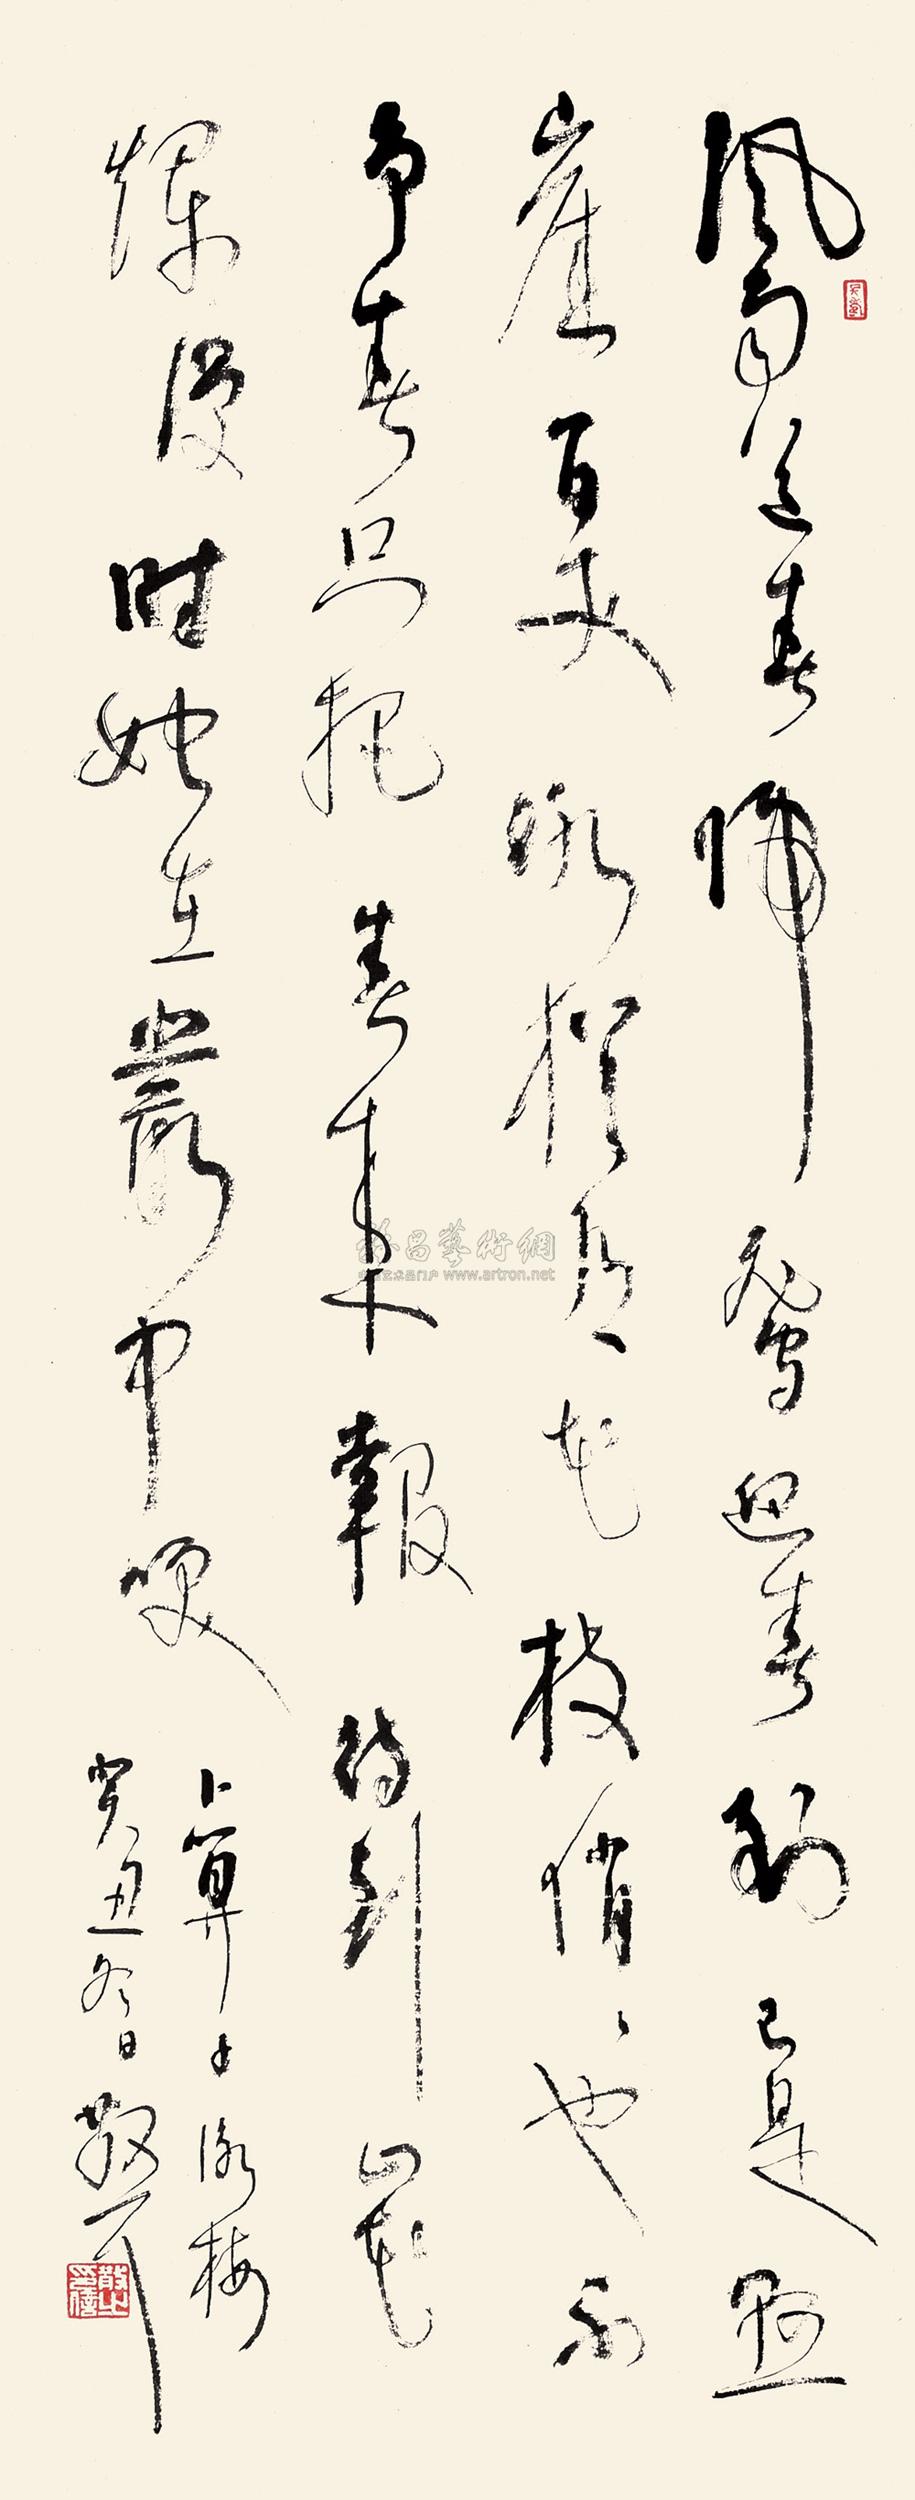 風雨送春歸飛雪迎春到已是懸
崖百丈冰猶有花枝俏俏也不
争春只把春来報待到山花
爛漫時她在叢中笑
卜算子咏梅
癸丑冬日散耳
雅昌藝術網
www.artron.net